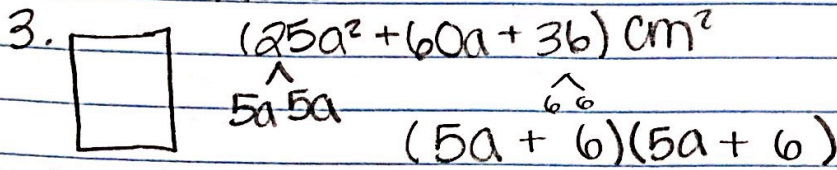 3. (25a² + 60a + 36) cm²
5a 5a 6 6
(5a + 6)(5a + 6)